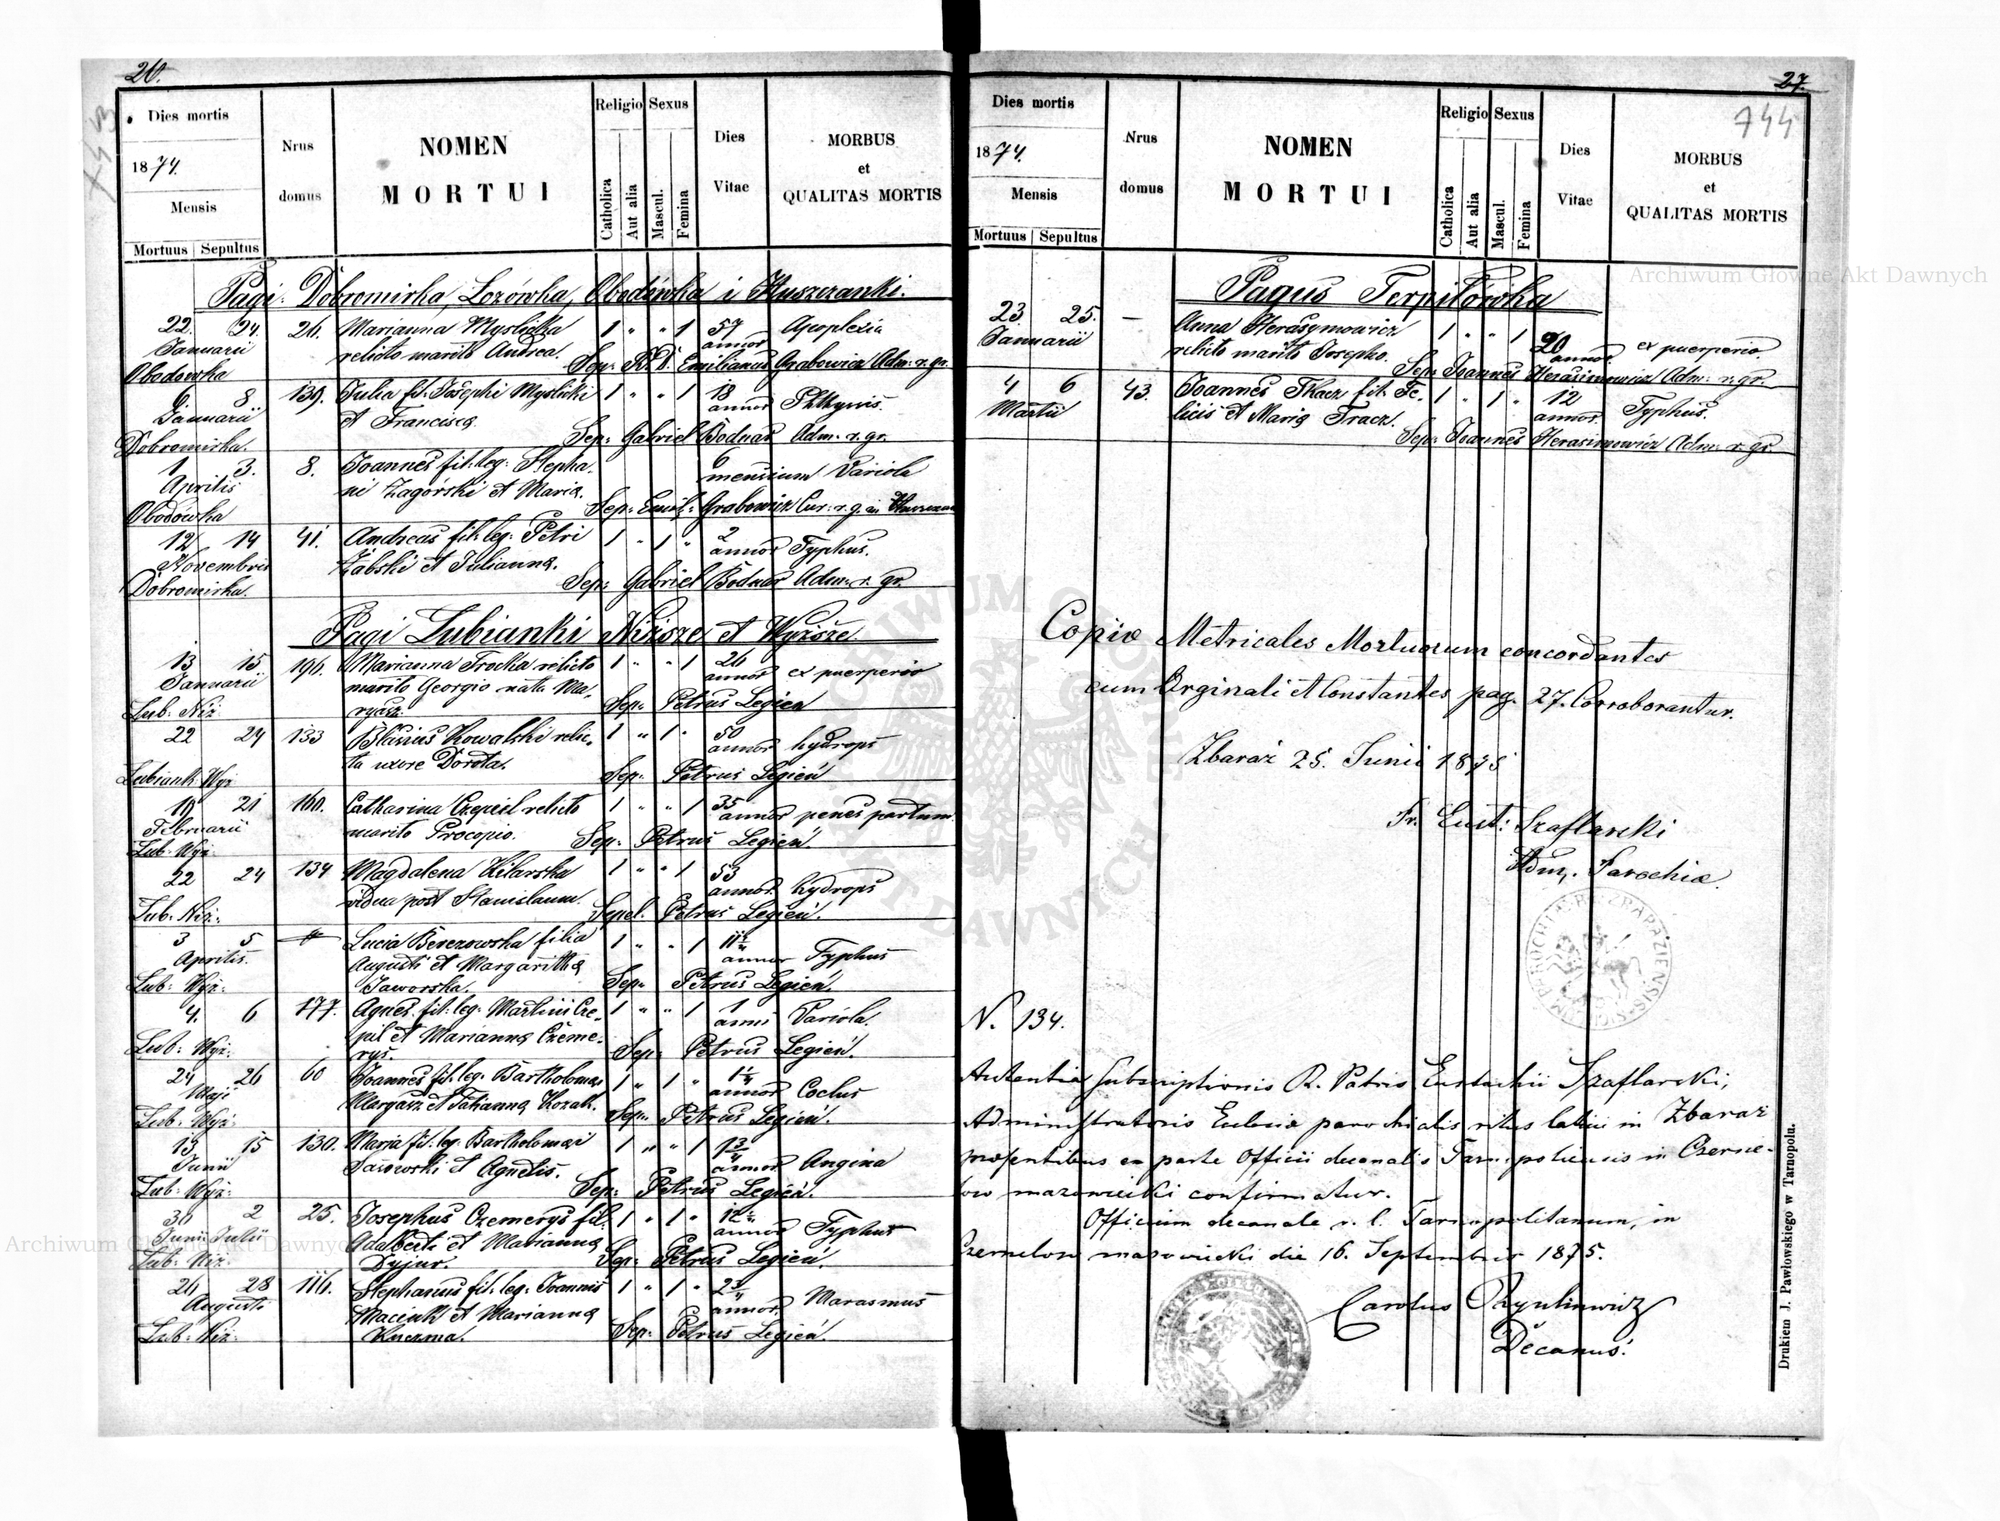 26.
Dies mortis
1874.
Mensis
Mortuus Sepultus
Nrus domus
NOMEN MORTUI
Religio
Catholica
Aut alia
Sexus
Mascul.
Femina
Dies Vitae
MORBUS et QUALITAS MORTIS
Pagi: Dobromirka, Lozówka, Obodówka i Hluszczanki.
22. 24 26. Marianna Myslicka 1 " " 1 57 Apoplexia
Januarii relicto marito Andrea. annor
Obodowka Sep: R. D. Emilianus Grabowicz Adm. r. gr.
6 8. 139. Julia fil. Josephi Myslicki 1 " " 1 18
Januarii et Francisca. annor
Dobromirka. Sep: Gabriel Bodnar Adm. r. gr.
1 3. 8. Joannes fil: leg: Stepha- 6
Aprilis ni Zagórski et Maria. mensium Variola
Obodówka Sep: Emil: Grabowicz Cur. r. g. in
12 14 41. Andreas fil: leg: Petri 1 " 1 " 2
Novembris Żabski et Julianna. annor Typhus.
Dobromirka. Sep: Gabriel Bodnar Adm. r. gr.
Pagi Lubianki Niższe et Wyższe.
13 15 196. Marianna Trocka relicto 1 " " 1 26
Januarii marito Georgio nata Ma- annor ex puerperio
Lub: Niż. ryasz. Sep: Petrus Legień
22 24 133 Blasius Kowalski relic- 1 " 1 " 50
ta uxore Dorota. annor hydrops
Lubiank: Wyż Sep: Petrus Legień
19 21 160. Catharina Czepiel relicto 1 " " 1 35
Februarii marito Procopio. annor penes partum.
Lub: Wyż: Sep: Petrus Legień.
22 24 134 Magdalena Kilarska 1 " " 1 53
vidua post Stanislaum. annor. hydrops
Lub: Niż: Sepel. Petrus Legień.
3 5 Lucia Berezowska filia 1 " " 1
Aprilis. Augusti et Margaritha annor Typhus
Lub: Wyż: Jaworska. Sep: Petrus Legień.
4. 6 177. Agnes fil: leg: Martini Cze- 1 " " 1 1
pil et Marianna Czeme- anni Variola.
Lub: Wyż: rys. Sep: Petrus Legień.
24 26 60 Joannes fil: leg. Bartholomaei 1 " 1 "
Maji Margasz et Tatianna Kozak. annor
Lub: Wyż: Sep: Petrus Legień.
13 15 130. Maria fil: leg: Bartholomaei 1 " " 1
Junii et Agnetis. annor Angina
Lub: Wyż: Sep: Petrus Legień.
30 2 25. Josephus Czemerys fil. 1 " 1 "
Junii Julii Adalberti et Marianna annor Typhus
Lub: Niż: Sep: Petrus Legień.
26 28 116. Stephanus fil: leg: Joannis 1 " 1 "
Augusti Maciuk et Marianna annor Marasmus
Lub: Niż: Kuczma. Sep: Petrus Legień.
27.
744
Dies mortis
1874.
Mensis
Mortuus Sepultus
Nrus domus
NOMEN MORTUI
Religio
Catholica
Aut alia
Sexus
Mascul.
Femina
Dies Vitae
MORBUS et QUALITAS MORTIS
Pagus Terpiłówka
23 25. — Anna Herasymowicz 1 " " 1 20 ex puerperio
Januarii relicto marito Josepho. annor.
Sep: Joannes Herasimowicz Adm. r. gr.
4 6 43. Joannes Tkacz fil: Fe- 1 " 1 " 12 Typhus.
Martii licis et Maria Tracz. annor.
Sep: Joannes Herasimowicz Adm. r. gr.
Copia Metricales Mortuorum concordantes
cum Orginali et Constantes pag. 27. Corroborantur.
Zbaraż 25. Junii 1875
Fr. Eust: Szaflarski
Adm. Parochiae.
N. 134.
Autentia subscriptionis R. Patris Eustachii Szaflarski,
Administratoris Ecclesiae parochialis ritus latini in Zbaraż
praesentibus ex parte Officii decanalis Tarnopoliensis in Czerne-
low mazowiecki confirmatur.
Officium decanale r. l. Tarnopolitanum, in
Czernelow mazowiecki die 16. Septembris 1875.
Carolus
Decanus.
Drukiem J. Pawłowskiego w Tarnopolu.
Archiwum Główne Akt Dawnych
Archiwum Główne Akt Dawnych
ARCHIWUM GŁÓWNE AKT DAWNYCH